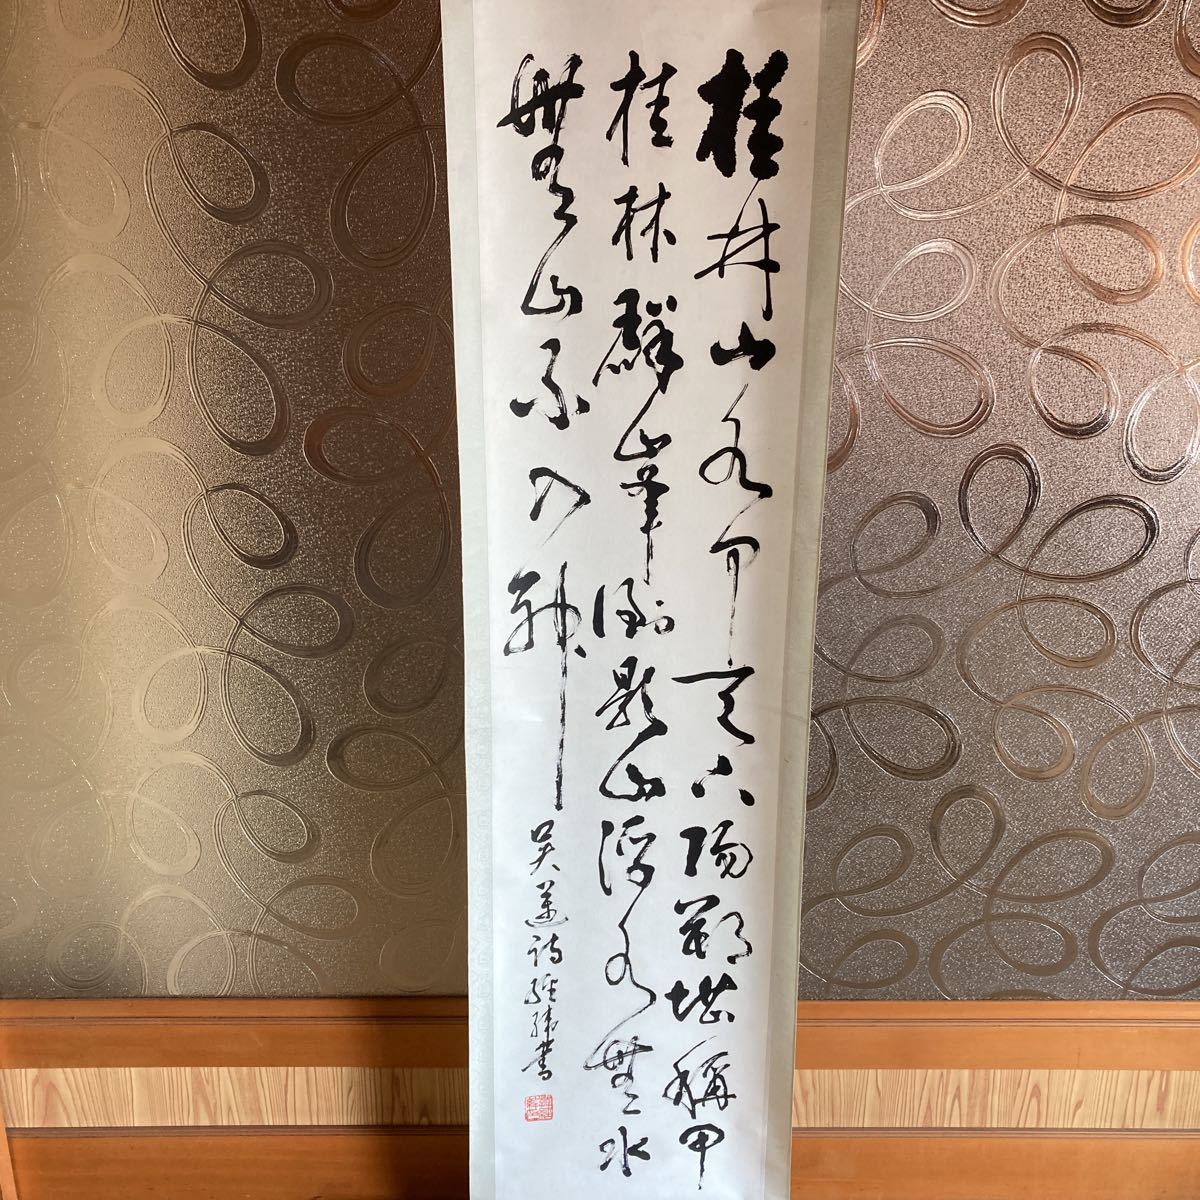 桂林山水甲天下陽朔堪稱甲
桂林群峯倒影山浮水無水
無山不入神
吴邁詩經緯書